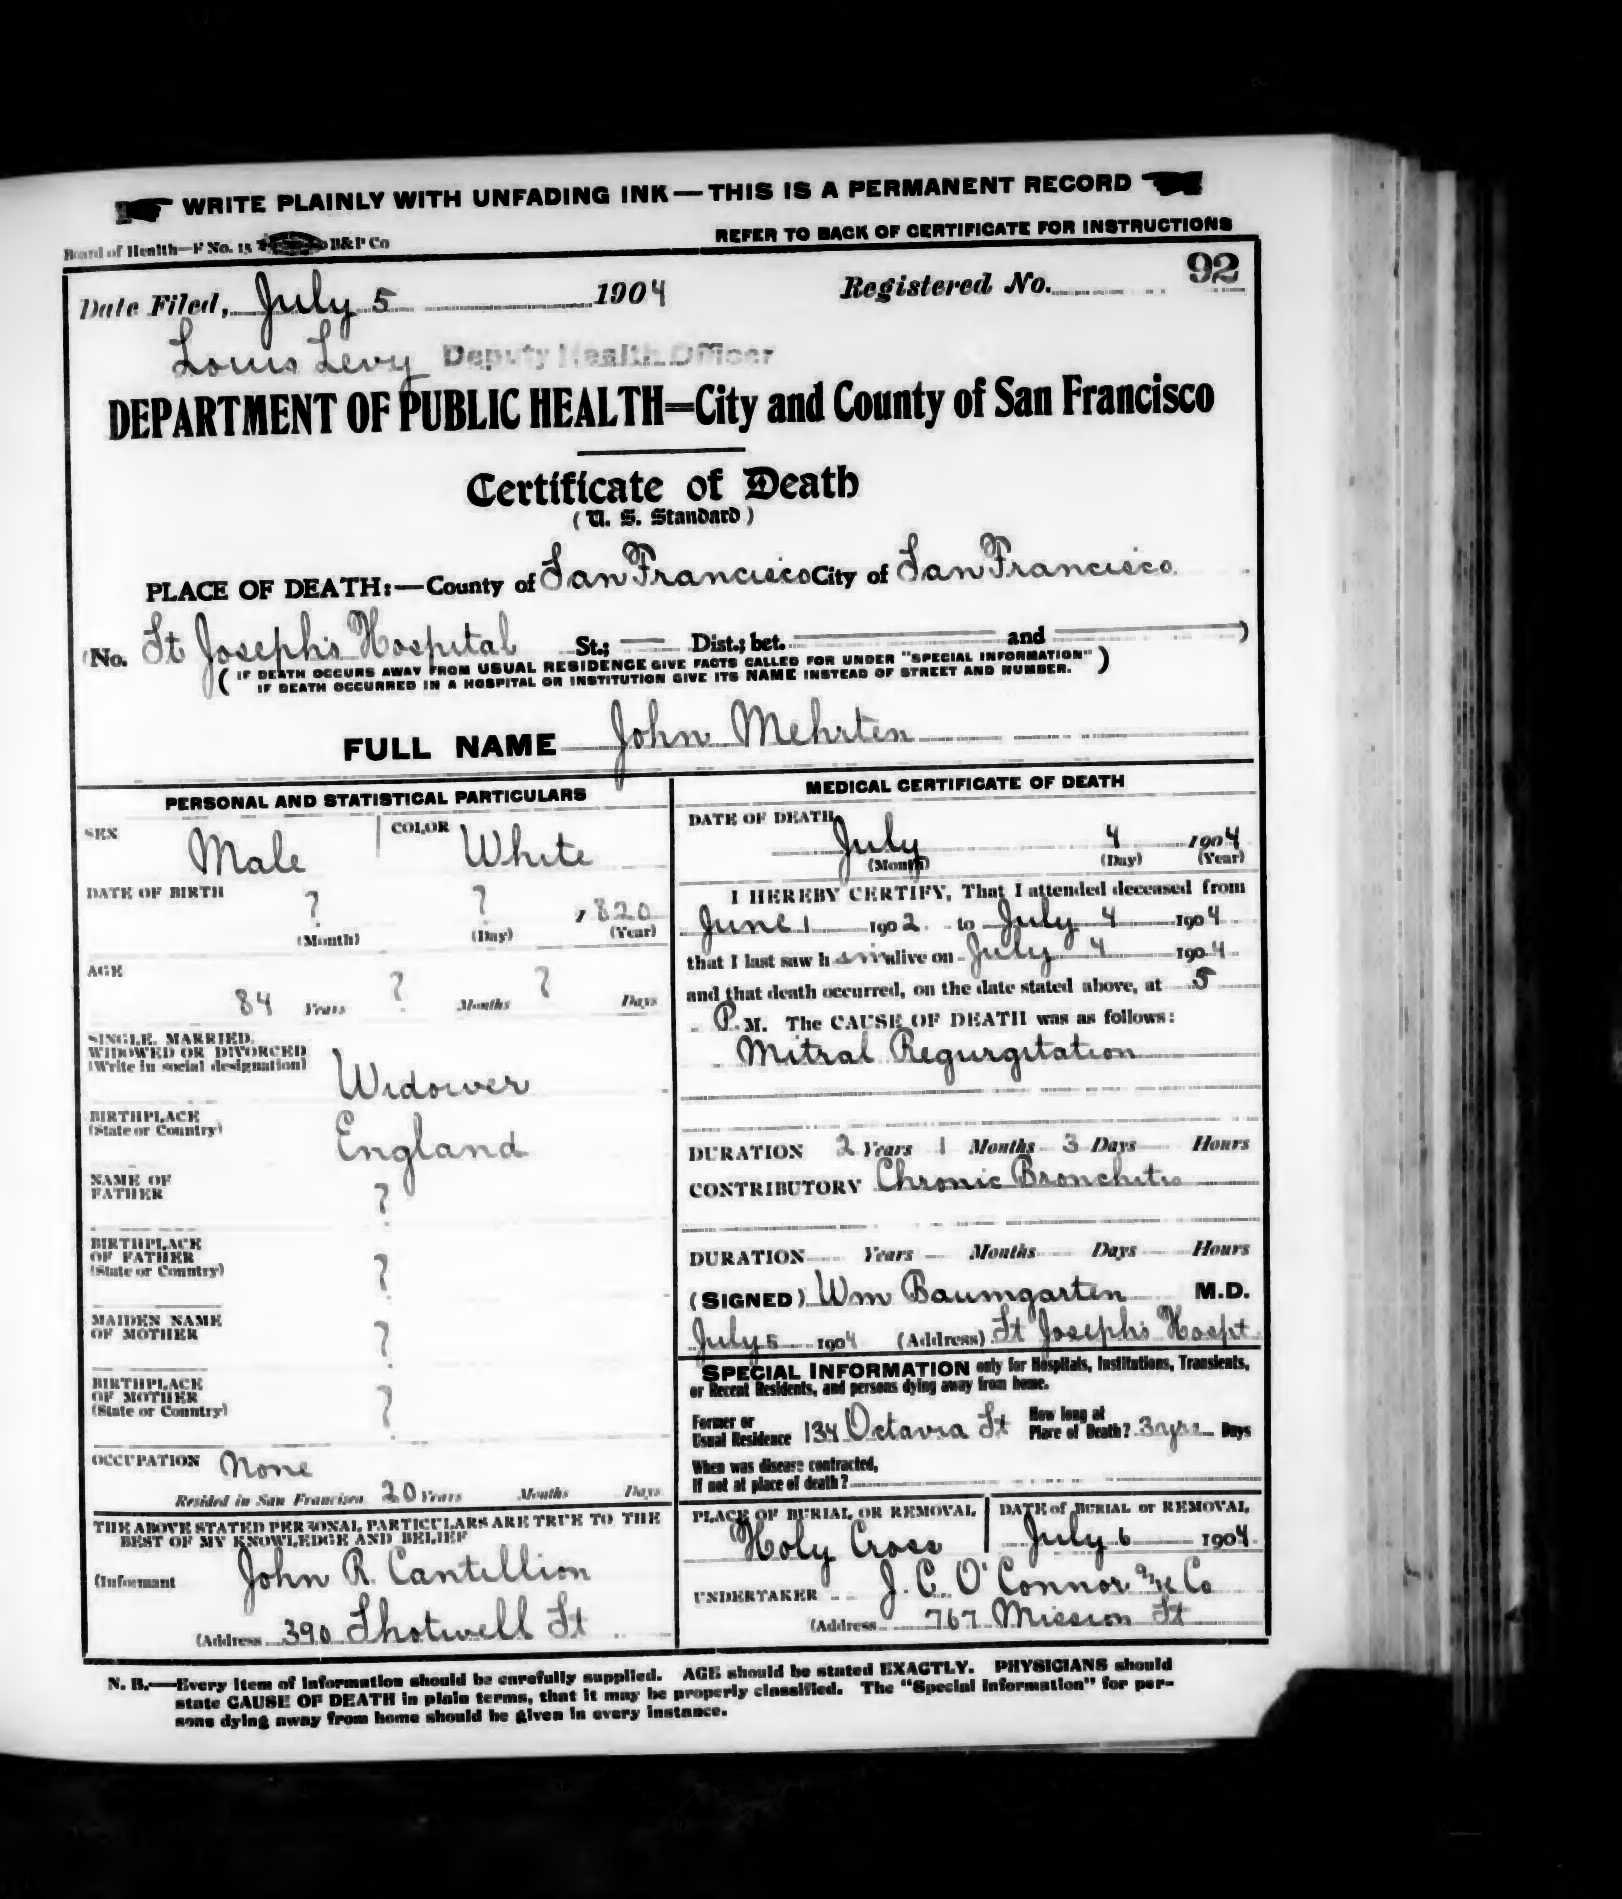 WRITE PLAINLY WITH UNFADING INK — THIS IS A PERMANENT RECORD
Board of Health—F No. 15 B&P Co
REFER TO BACK OF CERTIFICATE FOR INSTRUCTIONS
Date Filed, July 5 1904 Registered No. 92
Louis Levy Deputy Health Officer
DEPARTMENT OF PUBLIC HEALTH=City and County of San Francisco
Certificate of Death
(U. S. Standard)
PLACE OF DEATH:—County of San Francisco City of San Francisco
(No. St Joseph's Hospital St.; Dist.; bet. and )
( IF DEATH OCCURS AWAY FROM USUAL RESIDENCE GIVE FACTS CALLED FOR UNDER "SPECIAL INFORMATION" )
IF DEATH OCCURRED IN A HOSPITAL OR INSTITUTION GIVE ITS NAME INSTEAD OF STREET AND NUMBER.
FULL NAME John Mehrten
PERSONAL AND STATISTICAL PARTICULARS
SEX Male COLOR White
DATE OF BIRTH ? ? 1820
(Month) (Day) (Year)
AGE
84 Years ? Months ? Days
SINGLE, MARRIED,
WIDOWED OR DIVORCED
(Write in social designation) Widower
BIRTHPLACE
(State or Country) England
NAME OF
FATHER ?
BIRTHPLACE
OF FATHER
(State or Country) ?
MAIDEN NAME
OF MOTHER ?
BIRTHPLACE
OF MOTHER
(State or Country) ?
OCCUPATION None
Resided in San Francisco 20 Years Months Days
THE ABOVE STATED PERSONAL PARTICULARS ARE TRUE TO THE
BEST OF MY KNOWLEDGE AND BELIEF
(Informant John R. Cantillion
(Address 390 Shotwell St
MEDICAL CERTIFICATE OF DEATH
DATE OF DEATH
July 4 1904
(Month) (Day) (Year)
I HEREBY CERTIFY, That I attended deceased from
June 1 1902 to July 4 1904
that I last saw him alive on July 4 1904
and that death occurred, on the date stated above, at 5
P. M. The CAUSE OF DEATH was as follows:
Mitral Regurgitation
DURATION 2 Years 1 Months 3 Days Hours
CONTRIBUTORY Chronic Bronchitis
DURATION Years Months Days Hours
(SIGNED) Wm Baumgarten M.D.
July 5 1904 (Address) St Joseph's Hospt
SPECIAL INFORMATION only for Hospitals, Institutions, Transients,
or Recent Residents, and persons dying away from home.
Former or
Usual Residence 134 Octavia St
How long at
Place of Death? 3 yrs Days
When was disease contracted,
If not at place of death?
PLACE OF BURIAL OR REMOVAL
Holy Cross
DATE of BURIAL or REMOVAL
July 6 1904
UNDERTAKER J. C. O'Connor & Co
(Address 767 Mission St
N. B.—Every item of information should be carefully supplied. AGE should be stated EXACTLY. PHYSICIANS should
state CAUSE OF DEATH in plain terms, that it may be properly classified. The "Special Information" for per-
sons dying away from home should be given in every instance.